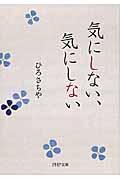 気にしない、
気にしない
ひろさちや
PHP文庫